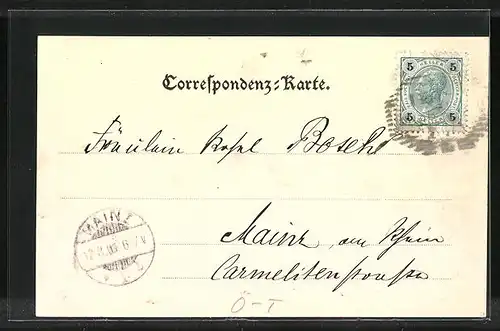 Correspondenz=Karte.
5 5
5 5
Fräulein Rosel Bosch
Mainz am Rhein
Carmelitenstrasse
MAINZ
Ö-T